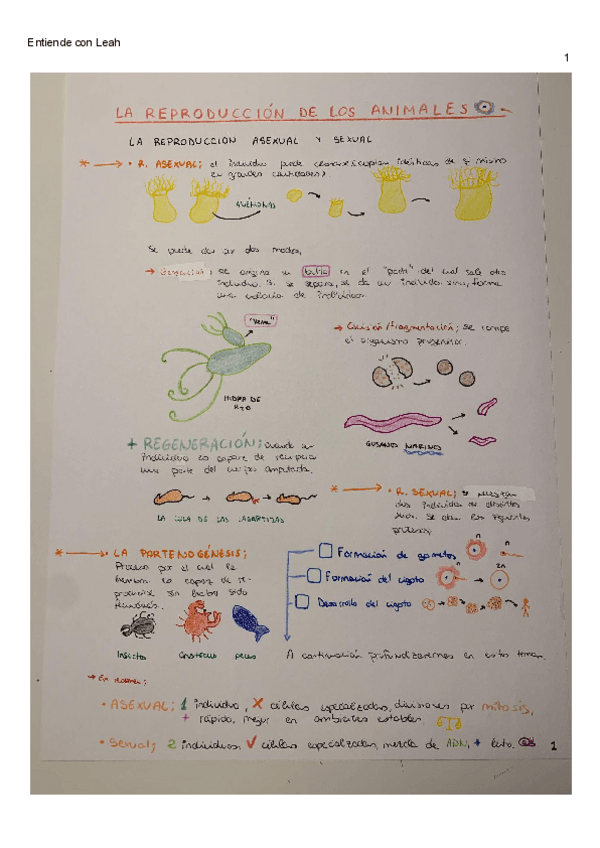 Entiende con Leah
1
LA REPRODUCCIÓN DE LOS ANIMALES
LA REPRODUCCION ASEXUAL Y SEXUAL
* → • R. ASEXUAL; el individuo puede clonarse (copias idénticas de sí mismo
en grandes cantidades)
Se puede dar por dos modos,
→ Gemación; se origina un bulto en el "padre" del cual sale otro
individuo. Si se separa, se da un individuo sino, forma
una colonia de individuos.
"Yema"
HIDRA DE
RÍO
→ Escisión/Fragmentación; se rompe
el organismo progenitor.
GUSANO MARINO
+ REGENERACIÓN; cuando un
individuo es capaz de recuperar
una parte del cuerpo amputada.
LA COLA DE LAS LAGARTIJAS
* → • R. SEXUAL; se necesitan
dos individuos de distintos
sexos. Se dan los siguientes
procesos;
* → • LA PARTENOGÉNESIS;
Proceso por el cual la
hembra es capaz de re-
producirse sin haber sido
fecundada.
Insectos crustáceos peces
Formación de gametos n n
Formación del cigoto n 2n
Desarrollo del cigoto
A continuación profundizaremos en estos temas.
→ En resumen;
• ASEXUAL; 1 individuo, X células especializadas, divisiones por mitosis,
+ rápido, mejor en ambientes estables.
• Sexual; 2 individuos, ✓ células especializadas, mezcla de ADN, + lento.
1